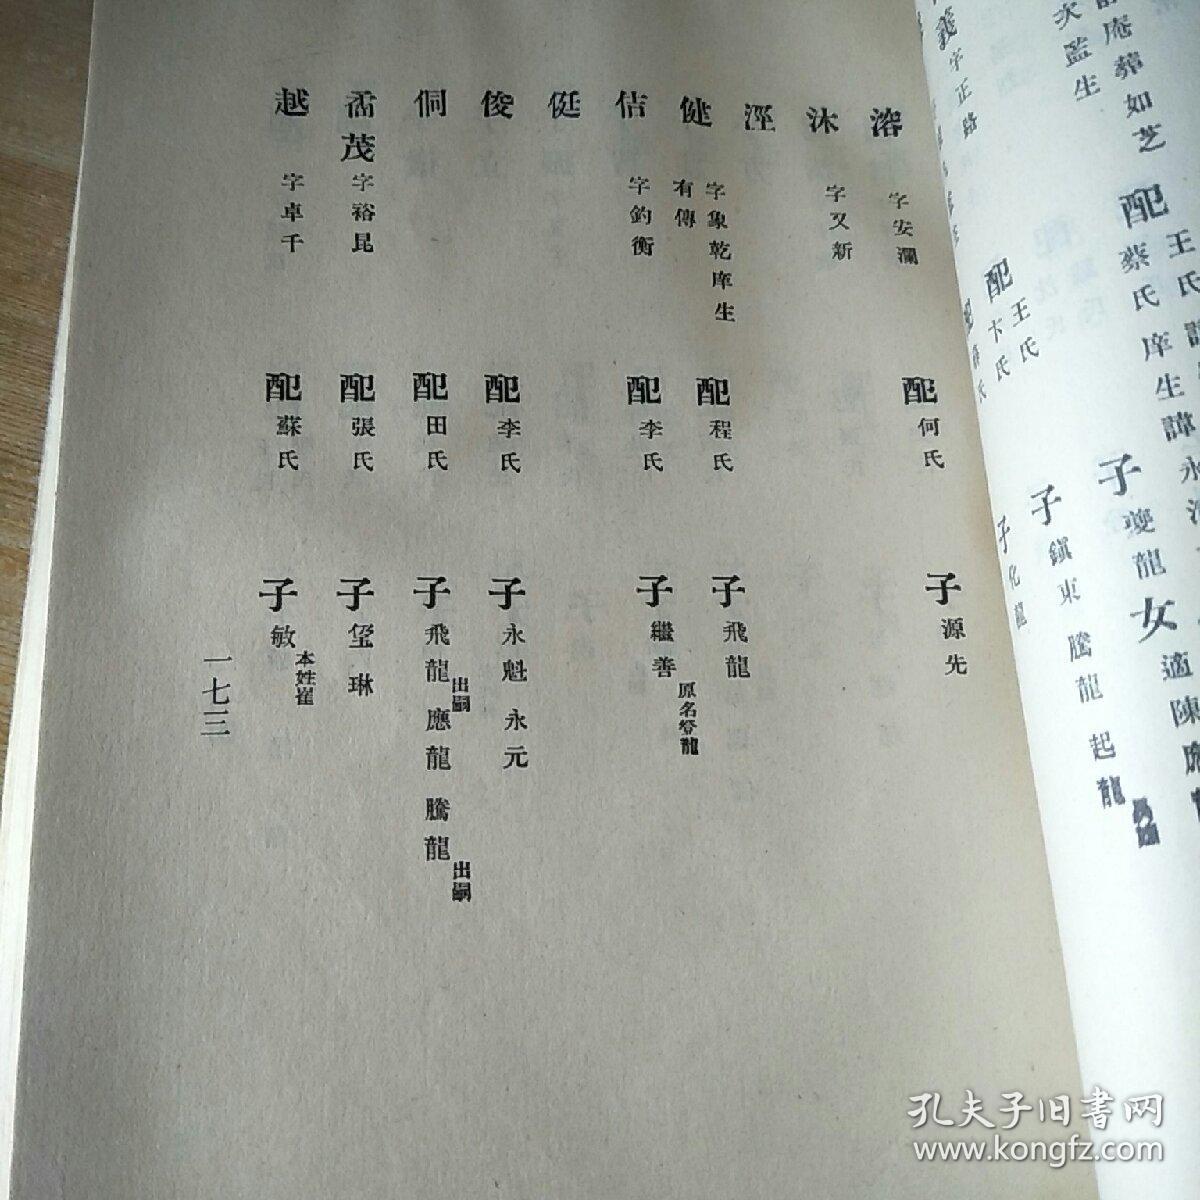 庵葬如芝 配蔡氏庠生諱永 子夔龍 女適陳
次監生 配王氏 子鎮東 騰龍 起龍
義字正路 配卞氏 子化龍
溶 字安瀾 配何氏 子源先
沐 字又新
涇
健 字象乾庠生有傳 配程氏 子飛龍
佶 字鈞衡 配李氏 子繼善 原名登龍
侹
俊 配李氏 子永魁 永元
侗 配田氏 子飛龍 出嗣 應龍 騰龍 出嗣
霱茂 字裕昆 配張氏 子琳
越 字卓千 配蘇氏 子敏 本姓崔
一七三
孔夫子旧书网
www.kongfz.com